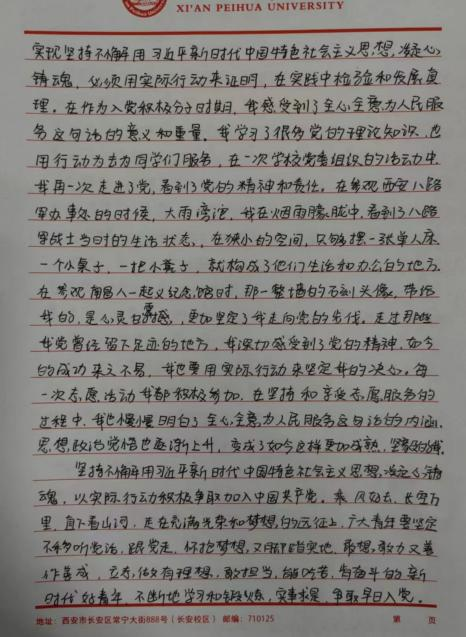 XI'AN PEIHUA UNIVERSITY
实现坚持不懈用习近平新时代中国特色社会主义思想,凝心
铸魂,必须用实际行动来证明,在实践中检验和发展真
理。在作为入党积极分子时期,我感受到了全心全意为人民服
务这句话的意义和重量。我学习了很多党的理论知识,也
用行动为去为同学们服务,在一次学校党委组织的活动中,
我再一次走进了党,看到了党的精神和责任。在参观西安八路
军办事处的时候,大雨滂沱,我在烟雨朦胧中,看到了八路
军战士当时的生活状态,在狭小的空间,只够摆一张单人床
一个小桌子,一把小凳子,就构成了他们生活和办公的地方。
在参观南昌八一起义纪念馆时,那一整墙的石刻头像,带给
我的,是心灵的震撼,更加坚定了我走向党的步伐。走过那些
我党曾经留下足迹的地方,我深切感受到了党的精神,如今
的成功来之不易,我也要用实际行动来坚定我的决心。每
一次志愿活动我都积极参加,在坚持和享受志愿服务的
过程中,我也慢慢明白了全心全意为人民服务这句话的内涵。
思想政治觉悟也逐渐上升,变成了如今这样更加成熟,坚毅的我。
坚持不懈用习近平新时代中国特色社会主义思想,凝心铸
魂,以实际行动积极争取加入中国共产党。乘风好去,长空万
里,直下看山河,走在充满光荣和梦想的远征上,广大青年要坚定
不移听党话,跟党走,怀抱梦想,又脚踏实地,敢想敢为又善
作善成,立志做有理想,敢担当,能吃苦,肯奋斗的新
时代好青年,不断地学习和锻炼,实事求是,争取早日入党。
地址:西安市长安区常宁大街888号(长安校区) 邮编:710125 第 页